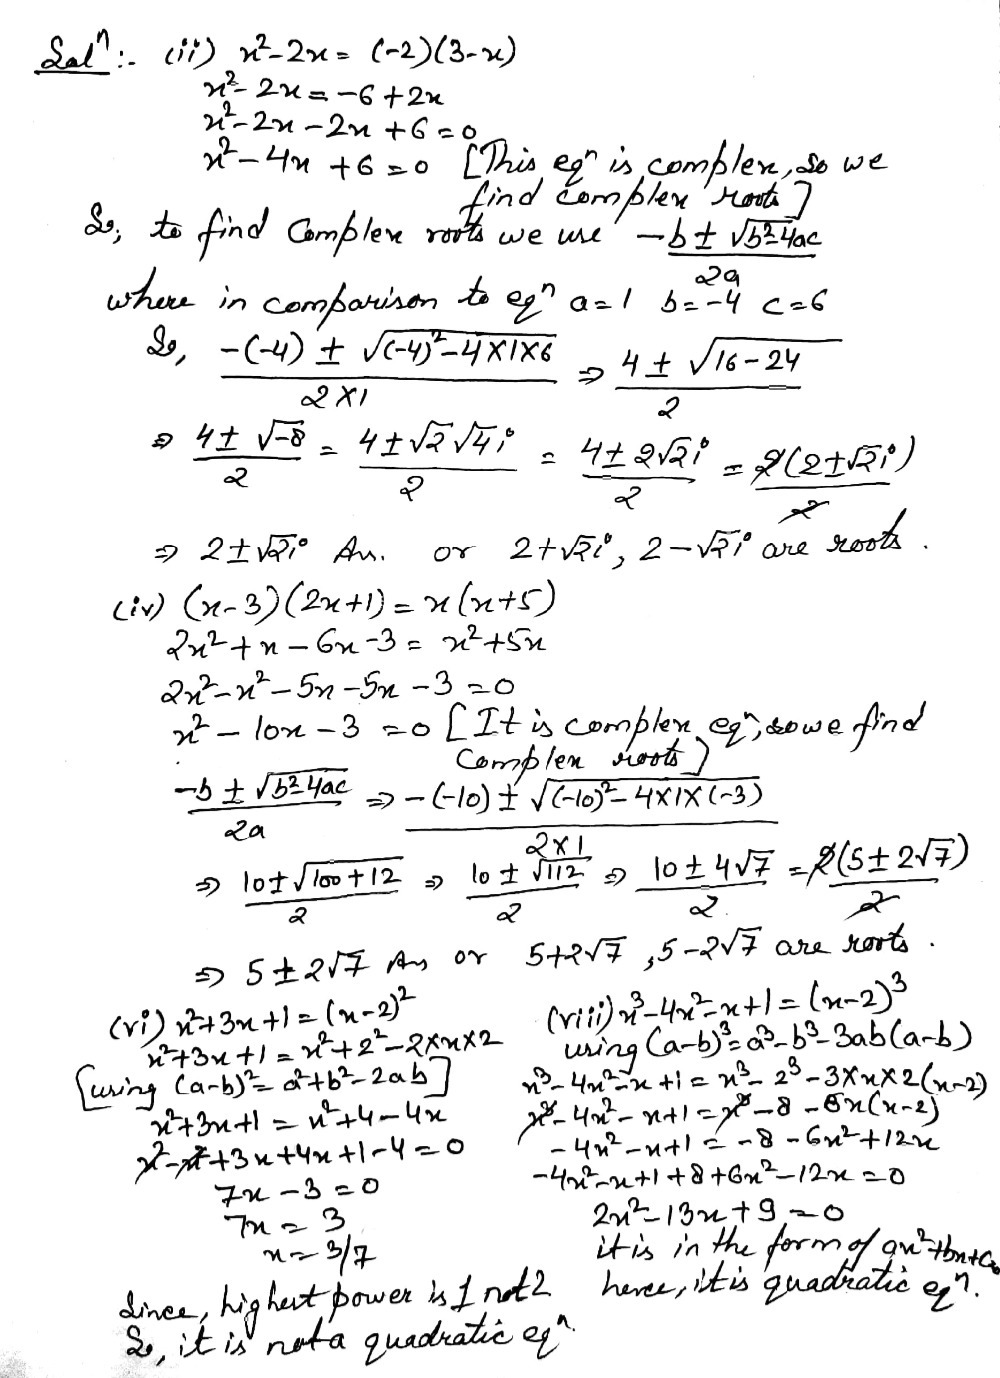 Solⁿ:- (ii) x²-2x = (-2)(3-x)
x²-2x = -6+2x
x²-2x-2x+6=0
x²-4x+6=0 [This eqⁿ is complex, so we
find complex roots]
So, to find Complex roots we use (-b ± √b²-4ac)/2a
where in comparison to eqⁿ a=1 b=-4 c=6
So, (-(-4) ± √(-4)²-4×1×6)/(2×1) ⇒ (4 ± √16-24)/2
⇒ (4 ± √-8)/2 = (4 ± √2 √4 i)/2 = (4 ± 2√2 i)/2 = 2(2±√2 i)/2
⇒ 2±√2i An. or 2+√2i, 2-√2i are roots.
(iv) (x-3)(2x+1) = x(x+5)
2x²+x-6x-3 = x²+5x
2x²-x²-5x-5x-3=0
x²-10x-3=0 [It is complex eqⁿ, so we find
Complex roots]
(-b ± √b²-4ac)/2a ⇒ (-(-10) ± √(-10)²-4×1×(-3))/(2×1)
⇒ (10±√100+12)/2 ⇒ (10 ± √112)/2 ⇒ (10 ± 4√7)/2 = 2(5±2√7)/2
⇒ 5±2√7 Ans or 5+2√7, 5-2√7 are roots.
(vi) x²+3x+1=(x-2)²
x²+3x+1=x²+2²-2×x×2
[using (a-b)²=a²+b²-2ab]
x²+3x+1=x²+4-4x
x²-x²+3x+4x+1-4=0
7x-3=0
7x=3
x=3/7
Since, highest power is 1 not 2
So, it is not a quadratic eqⁿ.
(viii) x³-4x²-x+1=(x-2)³
using (a-b)³=a³-b³-3ab(a-b)
x³-4x²-x+1=x³-2³-3×x×2(x-2)
x³-4x²-x+1=x³-8-6x(x-2)
-4x²-x+1=-8-6x²+12x
-4x²-x+1+8+6x²-12x=0
2x²-13x+9=0
it is in the form of ax²+bx+c=0
hence, it is quadratic eqⁿ.